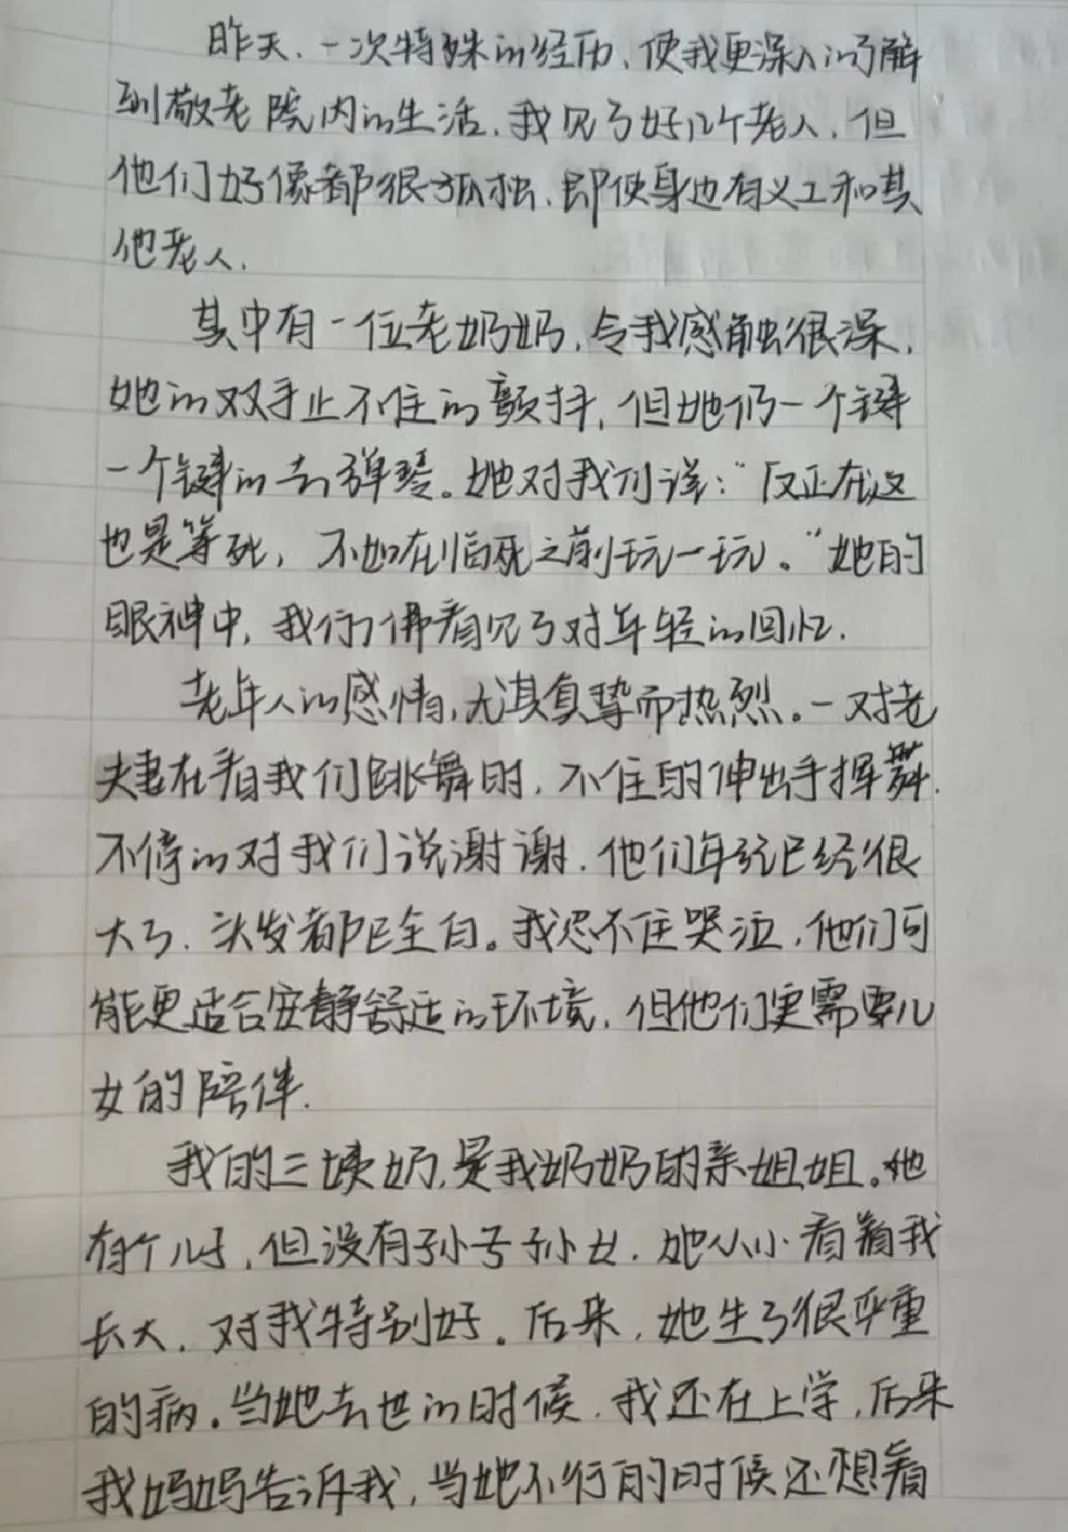 昨天.一次特殊的经历,使我更深入的了解
到敬老院内的生活.我见了好几个老人.但
他们好像都很孤独.即使身边有义工和其
他老人.
其中有一位老奶奶,令我感触很深,
她的双手止不住的颤抖,但她仍一个键
一个键的去弹琴。她对我们说:“反正在这
也是等死,不如在临死之前玩一玩。”她的
眼神中,我仿佛看见了对年轻的回忆.
老年人的感情,尤其真挚而热烈。一对老
夫妻在看我们跳舞时,不住的伸出手挥舞.
不停的对我们说谢谢.他们年纪已经很
大了.头发都已全白。我忍不住哭泣,他们可
能更适合安静舒适的环境,但他们更需要儿
女的陪伴.
我的三姨奶,是我奶奶的亲姐姐。她
有个儿子,但没有孙子孙女.她从小看着我
长大,对我特别好。后来,她生了很严重
的病。当她去世的时候.我还在上学,后来
我妈妈告诉我,当她不行的时候还想看